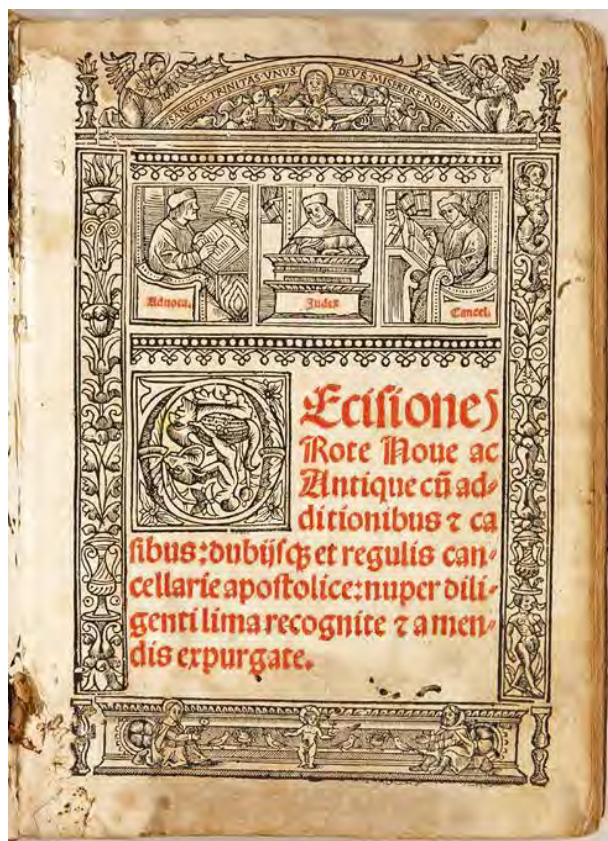 SANCTA·TRINITAS·VNVS DEVS·MISERERE·NOBIS·
Aduoca. Judex Cancel.
DEcisiones
Rote Noue ac
Antique cū ad⸗
ditionibus ⁊ ca
sibus: dubijsqꝫ et regulis can⸗
cellarie apostolice: nuper dili⸗
genti lima recognite ⁊ a men⸗
dis expurgate.